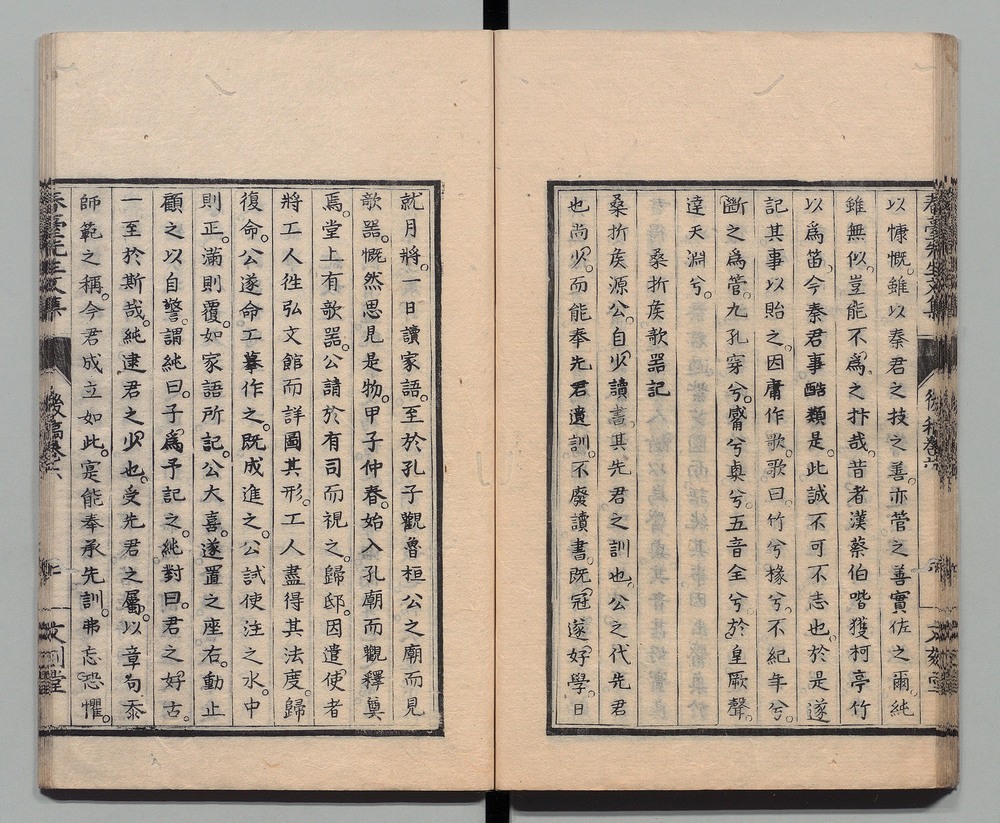 以慷慨。雖以秦君之技之善。亦菅之善實佐之爾。純
雖無似。豈能不爲之抃哉。昔者漢蔡伯喈獲柯亭竹
以爲笛。今秦君事酷類是。此誠不可不志也。於是遂
記其事以貽之。因庸作歌。歌曰。竹兮椽兮。不紀年兮。
斷之爲管。九孔穿兮。窾兮奐兮。五音全兮。於皇厥聲。
達天淵兮。
桑折矦欹器記
桑折矦源公。自少讀書。其先君之訓也。公之代先君
也尚少。而能奉先君遺訓。不廢讀書。既冠遂好學。日
就月將。一日讀家語。至於孔子觀魯桓公之廟而見
欹器。慨然思見是物。甲子仲春。始入孔廟而觀釋奠
焉。堂上有欹器。公請於有司而視之。歸邸。因遣使者
將工人徃弘文館而詳圖其形。工人盡得其法度。歸
復命。公遂命工摹作之。既成進之。公試使注之水。中
則正。滿則覆。如家語所記。公大喜。遂置之座右。動止
顧之以自警。謂純曰。子爲予記之。純對曰。君之好古。
一至於斯哉。純逮君之少也。受先君之屬。以章句忝
師範之稱。今君成立如此。寔能奉承先訓。弗忘恐懼。
春臺先生文集
後稿卷六